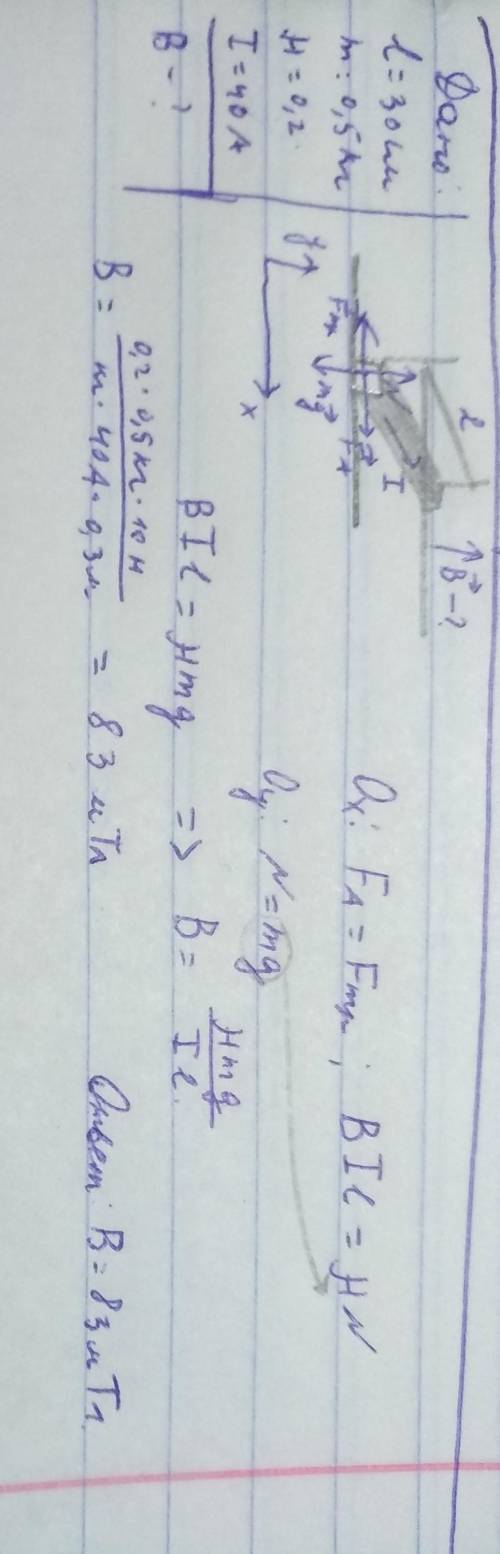 Дано:
l = 30 см
m = 0,5 кг
μ = 0,2
I = 40 А
B - ?
l
↑B⃗ - ?
I
N⃗
Fтр
F⃗A
mg⃗
y
x
Ox: FA = Fтр; BIl = μN
Oy: N = mg
BIl = μmg => B = μmg / Il
B = 0,2 · 0,5 кг · 10 Н / m · 40 А · 0,3 м = 83 мТл
Ответ: B = 83 мТл.